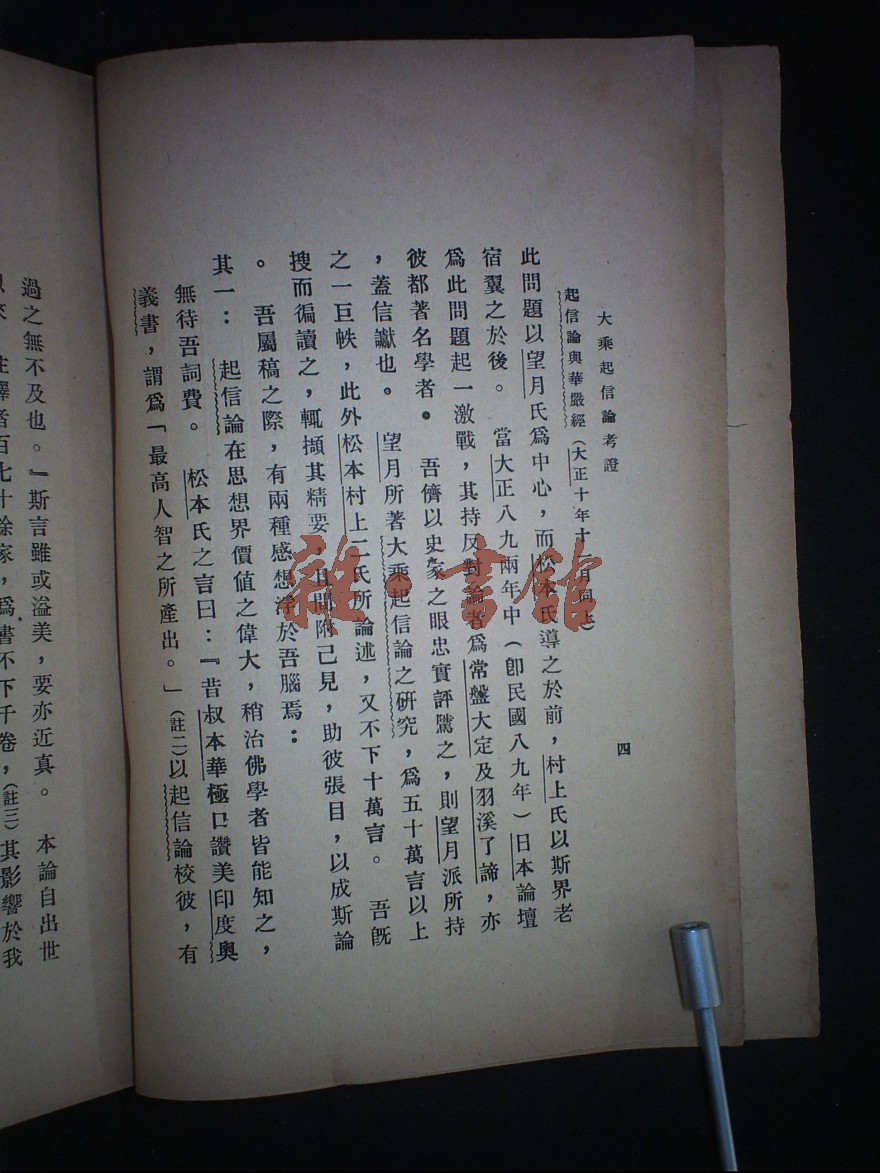 大乘起信論考證
四
起信論與華嚴經（大正十年十二月同上）
此問題以望月氏爲中心，而松本氏導之於前，村上氏以斯界老
宿翼之於後。當大正八九兩年中（卽民國八九年）日本論壇
爲此問題起一激戰，其持反對論者爲常盤大定及羽溪了諦，亦
彼都著名學者。吾儕以史家之眼忠實評騭之，則望月派所持
，蓋信讞也。望月所著大乘起信論之硏究，爲五十萬言以上
之一巨帙，此外松本村上二氏所論述，又不下十萬言。吾旣
搜而徧讀之，輒擷其精要，且間附己見，助彼張目，以成斯論
。吾屬稿之際，有兩種感想浮於吾腦焉：
其一：起信論在思想界價値之偉大，稍治佛學者皆能知之，
無待吾詞費。松本氏之言曰：『昔叔本華極口讚美印度奥
義書，謂爲「最高人智之所產出。」（註二）以起信論校彼，有
過之無不及也。』斯言雖或溢美，要亦近真。本論自出世
以來，註釋者百七十餘家，爲書不下千卷，（註三）其影響於我
雜·書館